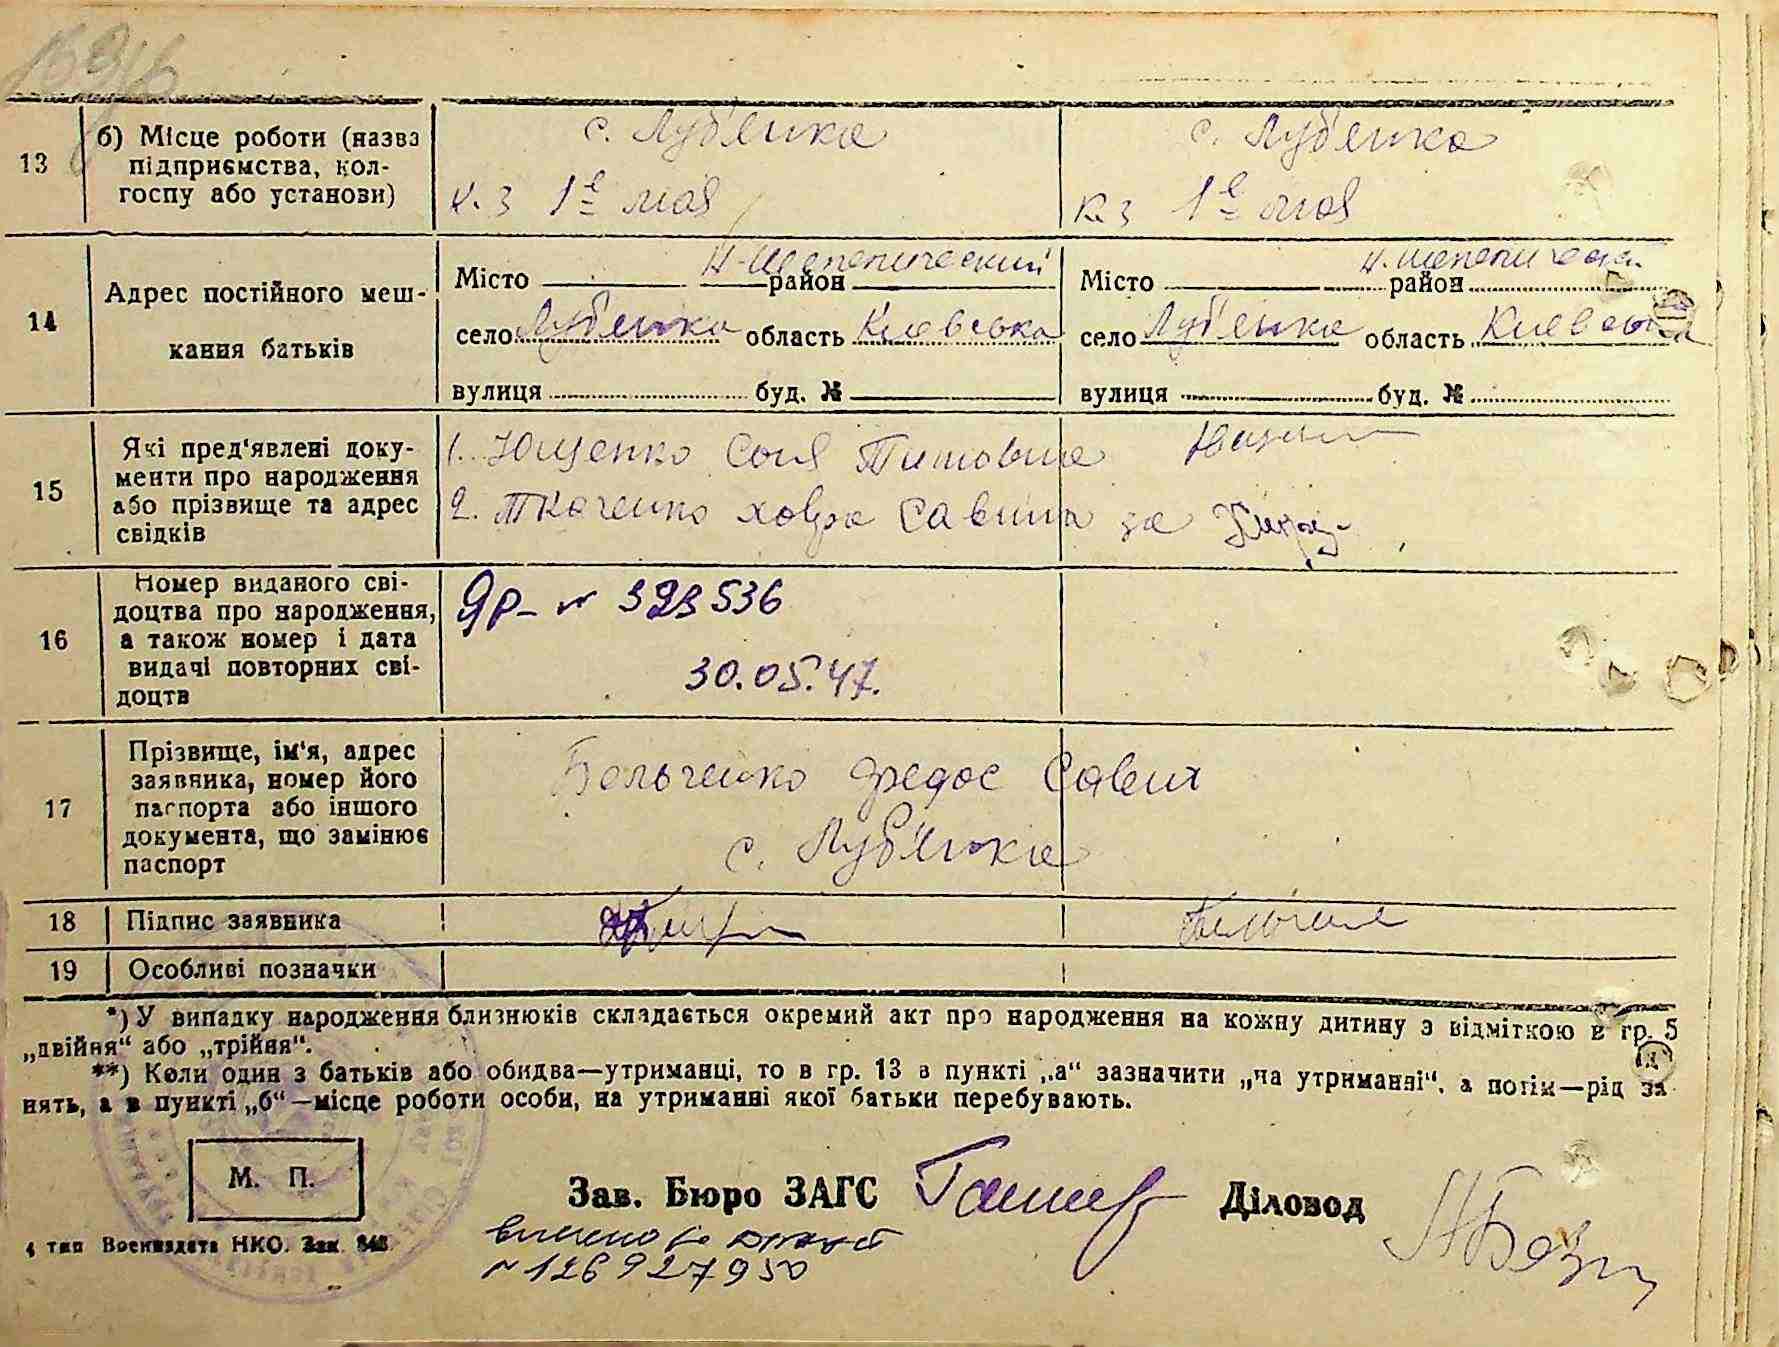 13
б) Місце роботи (назва
підприємства, кол-
госпу або установи)
с. Луб'янка
к. з 1е мая
с. Луб'янка
к. з 1е мая
14
Адрес постійного меш-
кання батьків
Місто район
село Луб'янка область Киевська
вулиця буд. №
Місто район
село Луб'янка область
вулиця буд. №
15
Які пред'явлені доку-
менти про народження
або прізвище та адрес
свідків
1. Ющенко Соня Титовна
2. Ткаченко Савишна за
16
Номер виданого сві-
доцтва про народження,
а також номер і дата
видачі повторних сві-
доцтв
№ 323536
30.05.47.
17
Прізвище, ім'я, адрес
заявника, номер його
паспорта або іншого
документа, що замінює
паспорт
Бельченко Федос Савич
с. Луб'янка
18 Підпис заявника
19 Особливі позначки
*) У випадку народження близнюків складається окремий акт про народження на кожну дитину з відміткою в гр. 5
„двійня“ або „трійня“.
**) Коли один з батьків або обидва—утриманці, то в гр. 13 в пункті „а“ зазначити „на утриманні“, а потім—рід за
нять, а в пункті „б“—місце роботи особи, на утриманні якої батьки перебувають.
М. П.
Зав. Бюро ЗАГС
Діловод
4 тип Воениздата НКО. Зак.
№ 126927950